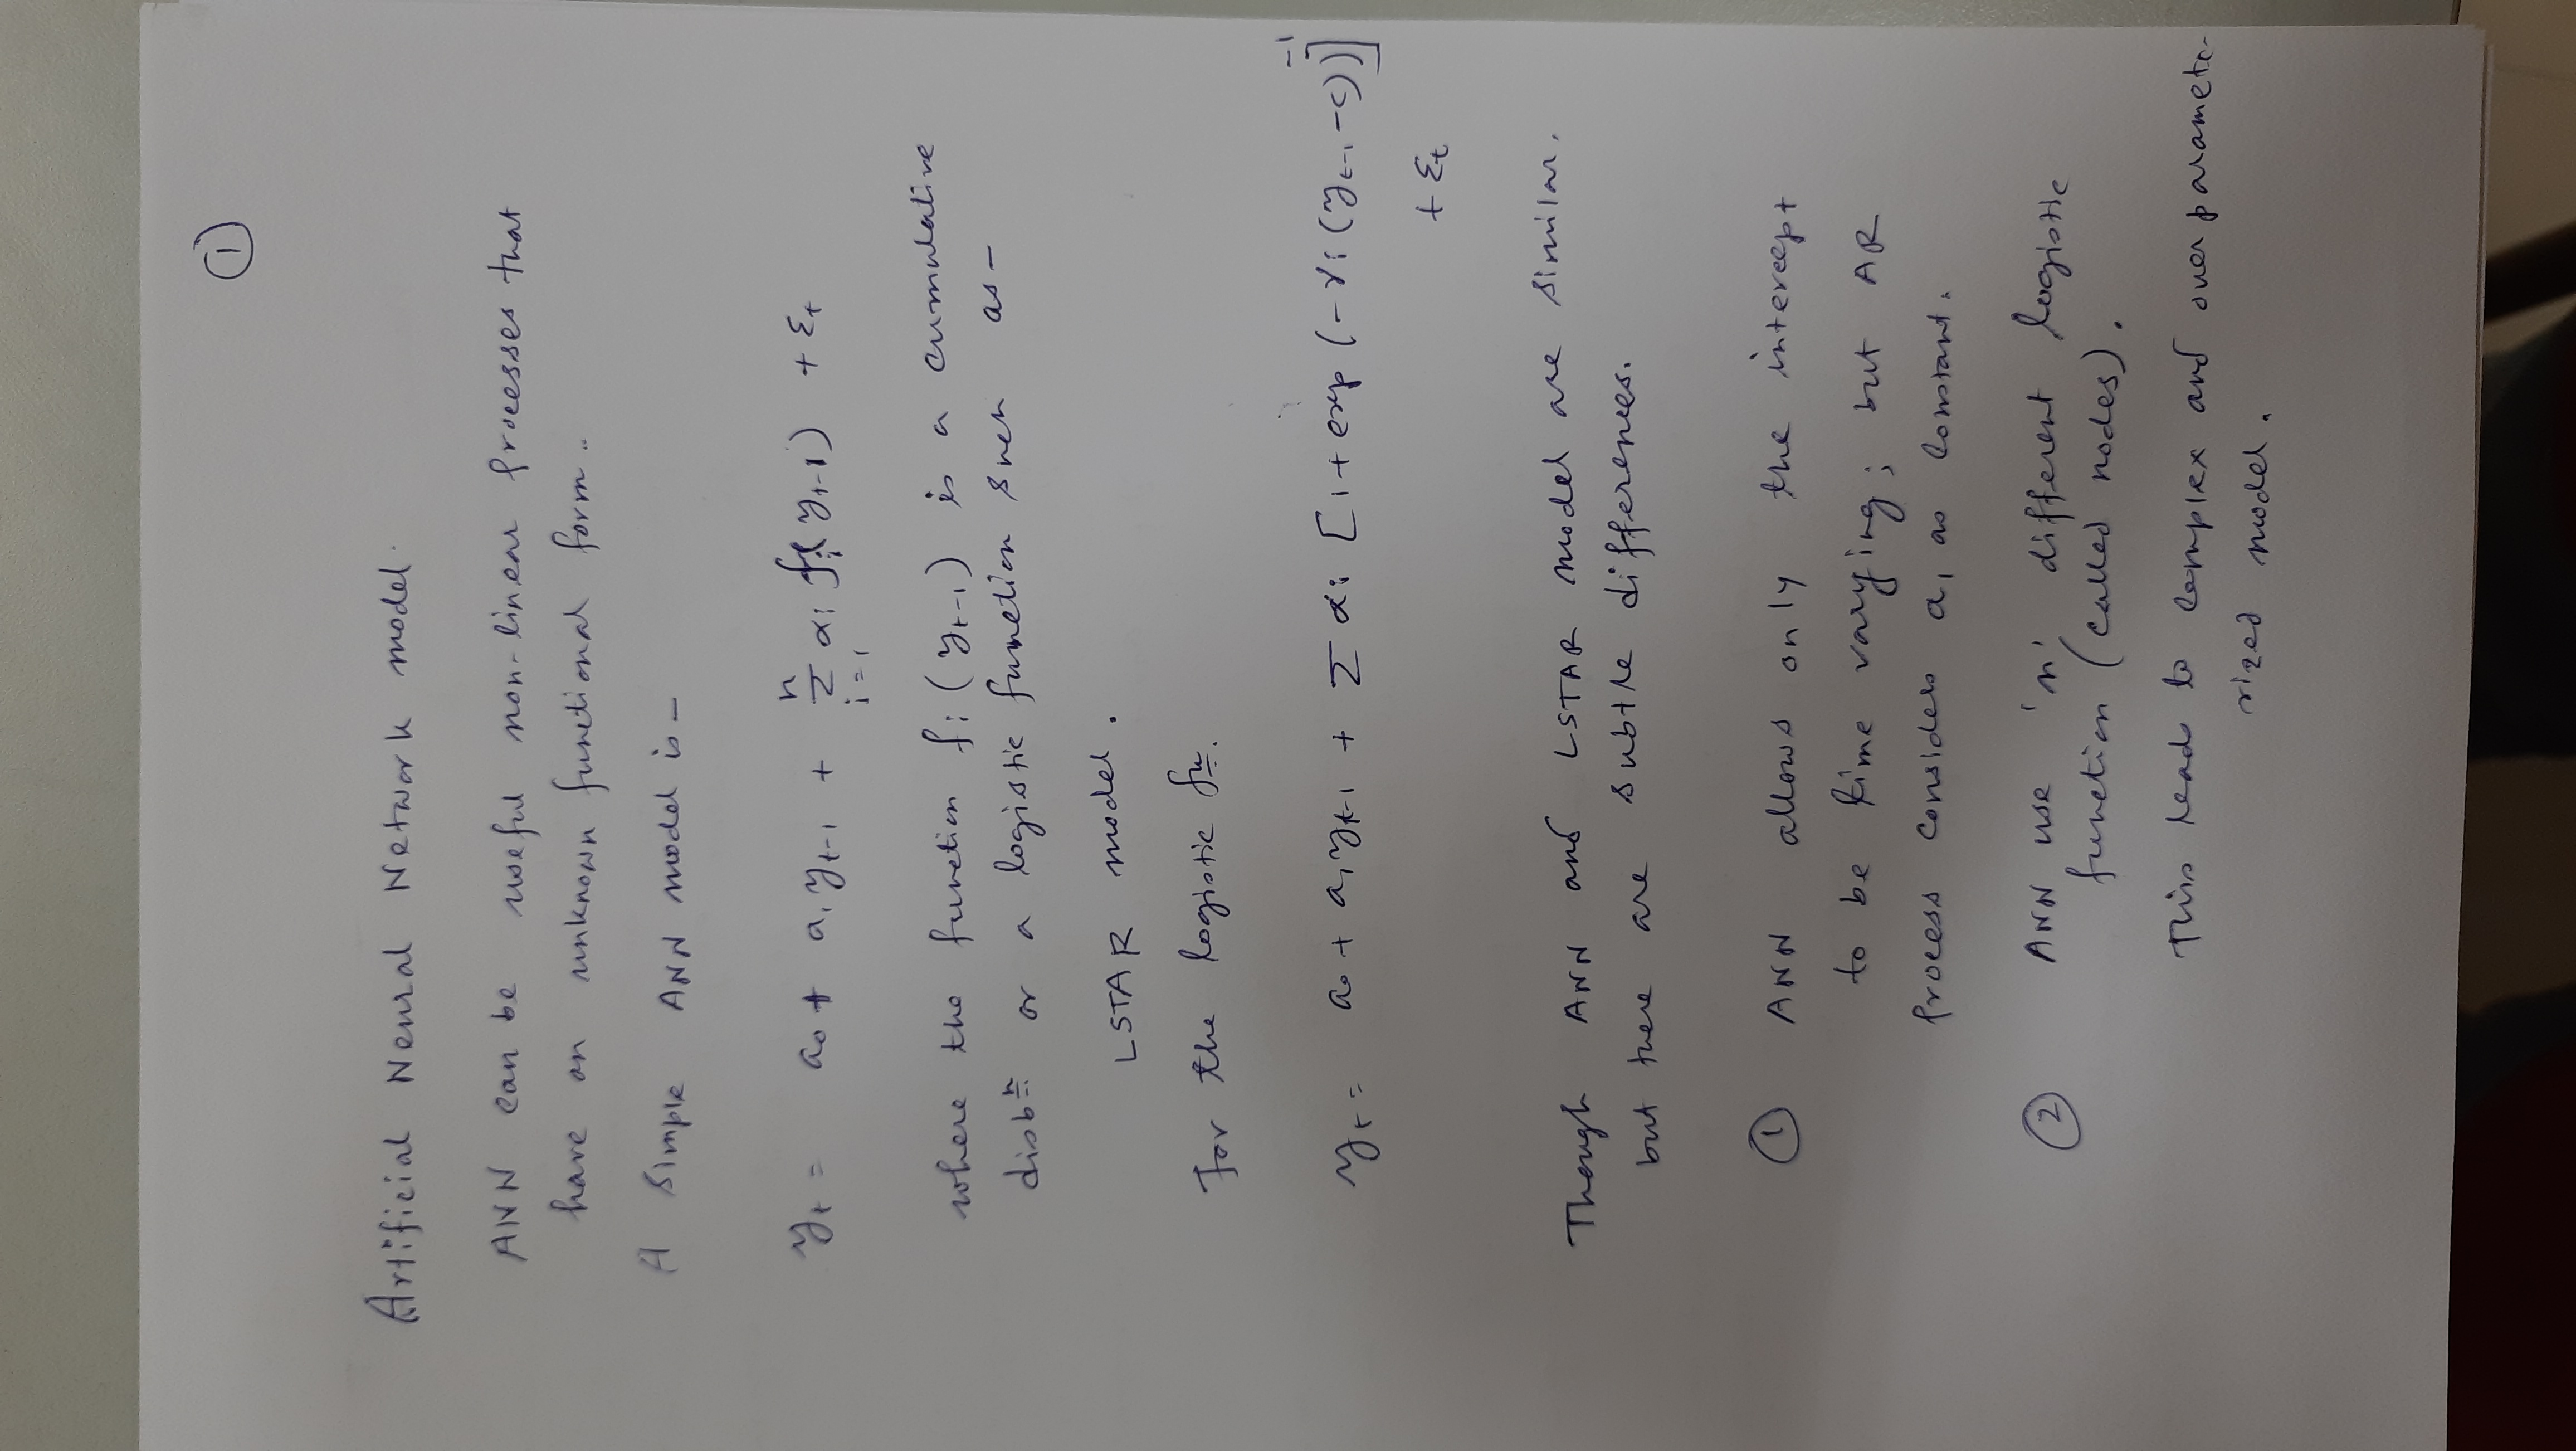 ①
Artificial Neural Network model.
ANN can be useful non-linear processes that
have an unknown functional form..
A simple ANN model is –
y_t = a₀ + a₁ y_{t-1} + Σ_{i=1}^{n} α_i f_i(y_{t-1}) + ε_t
where the function f_i (y_{t-1}) is a cumulative
disbⁿ or a logistic function such as –
LSTAR model.
For the logistic fn.
y_t = a₀ + a₁ y_{t-1} + Σ α_i [1 + exp (-γ_i (y_{t-1} - c))]^{-1}
+ ε_t
Though ANN and LSTAR model are similar.
but there are subtle differences.
① ANN allows only the intercept
to be time varying; but AR
process considers a₁ as constant.
② ANN use 'n' different logistic
function (called nodes).
This leads to complex and over paramete-
rized model.